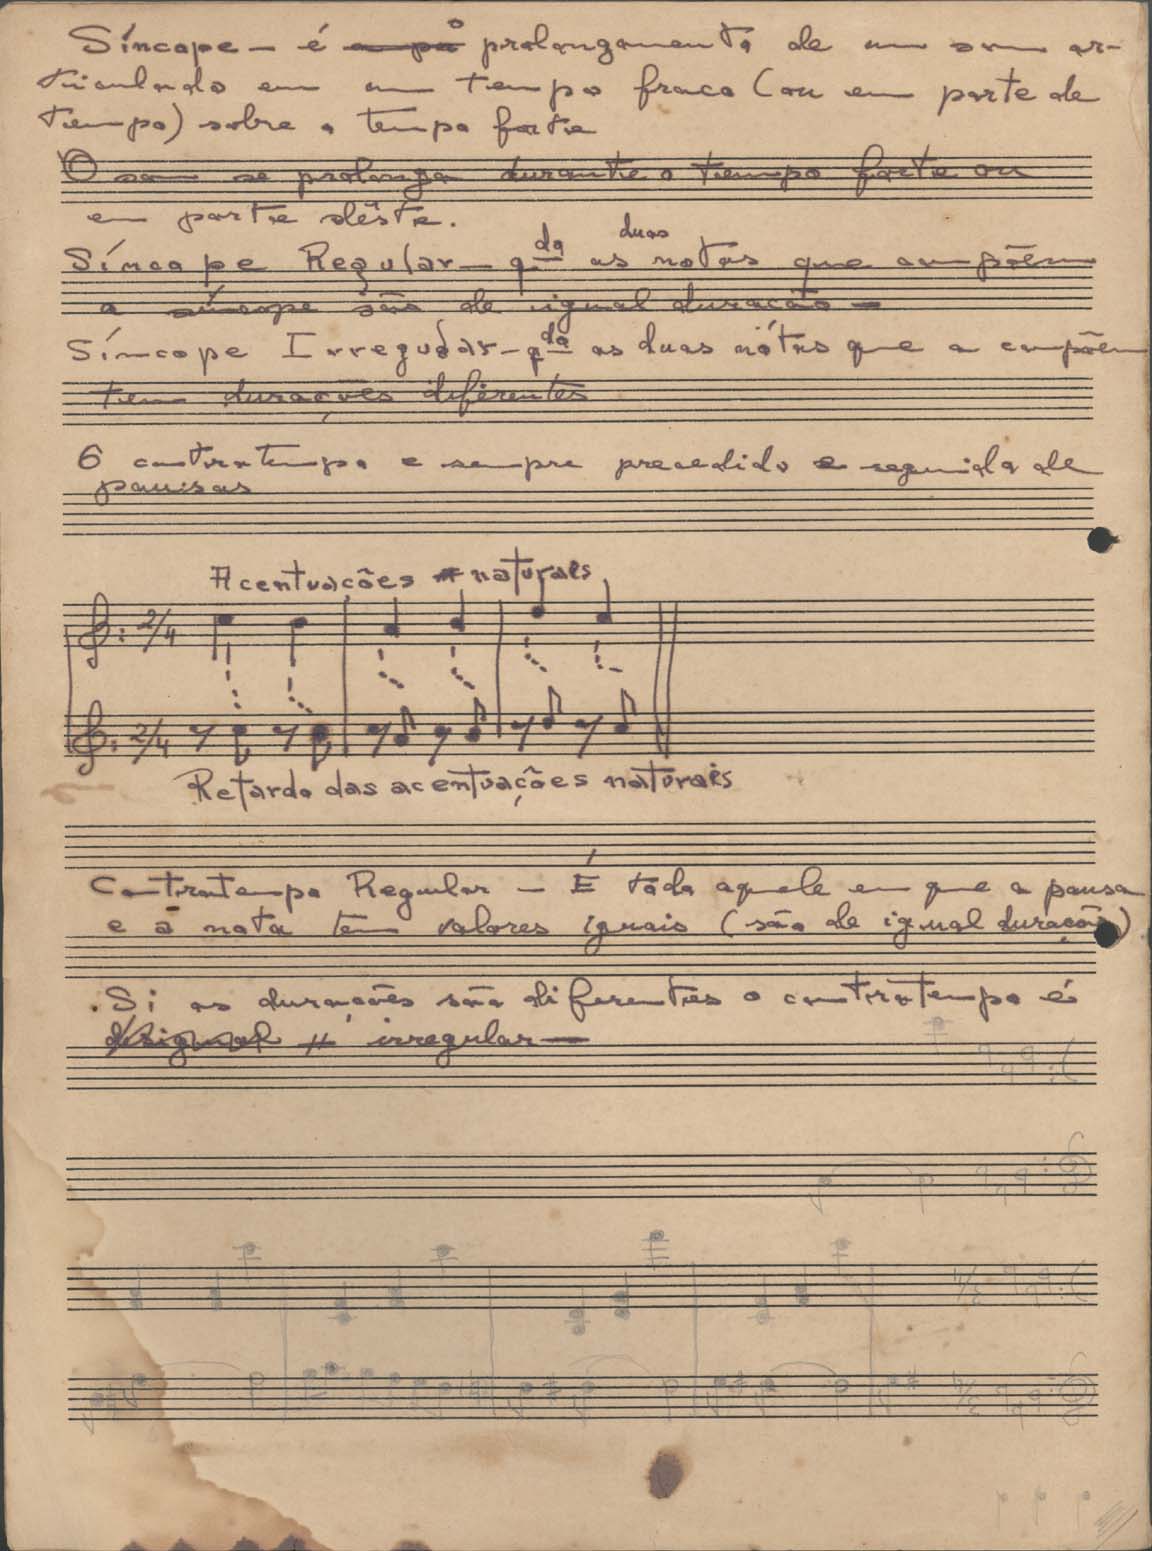 Síncope - é o prolongamento de um som ar-
ticulado em um tempo fraco (ou em parte de
tempo) sobre o tempo forte
O som se prolonga durante o tempo forte ou
em parte dêste.
Síncope Regular - qdo as duas notas que compõem
a síncope são de igual duração -
Síncope Irregular - qdo as duas nótas que a compõem
tem durações diferentes
O contratempo e sempre precedido e seguido de
pausas
Acentuações naturais
2/4
2/4
Retardo das acentuações naturais
Contratempo Regular - É todo aquele em que a pausa
e a nota tem valores iguais (são de igual duração)
Si as durações são diferentes o contratempo é
desigual # irregular -